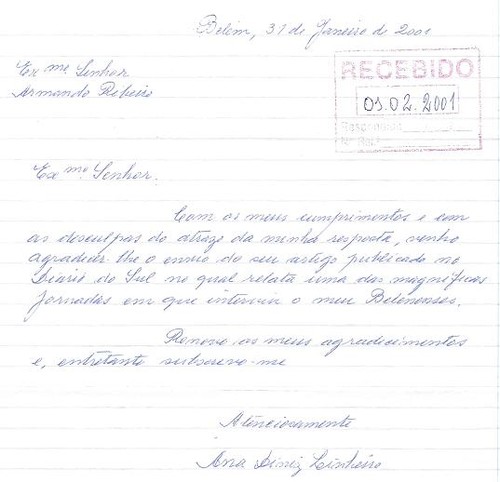 Belém, 31 de Janeiro de 2001
Exmº Senhor
Armando Ribeiro
RECEBIDO
09.02.2001
Respondido
Nº Ref.
Exmº Senhor.
Com os meus cumprimentos e com
as desculpas do atrazo da minha resposta, venho
agradecer-lhe o envio do seu artigo publicado no
Diário do Sul no qual relata uma das magníficas
jornadas em que interviu o meu Belenenses.
Renovo os meus agradecimentos
e, entretanto subscrevo-me
Atenciosamente
Ana Diniz